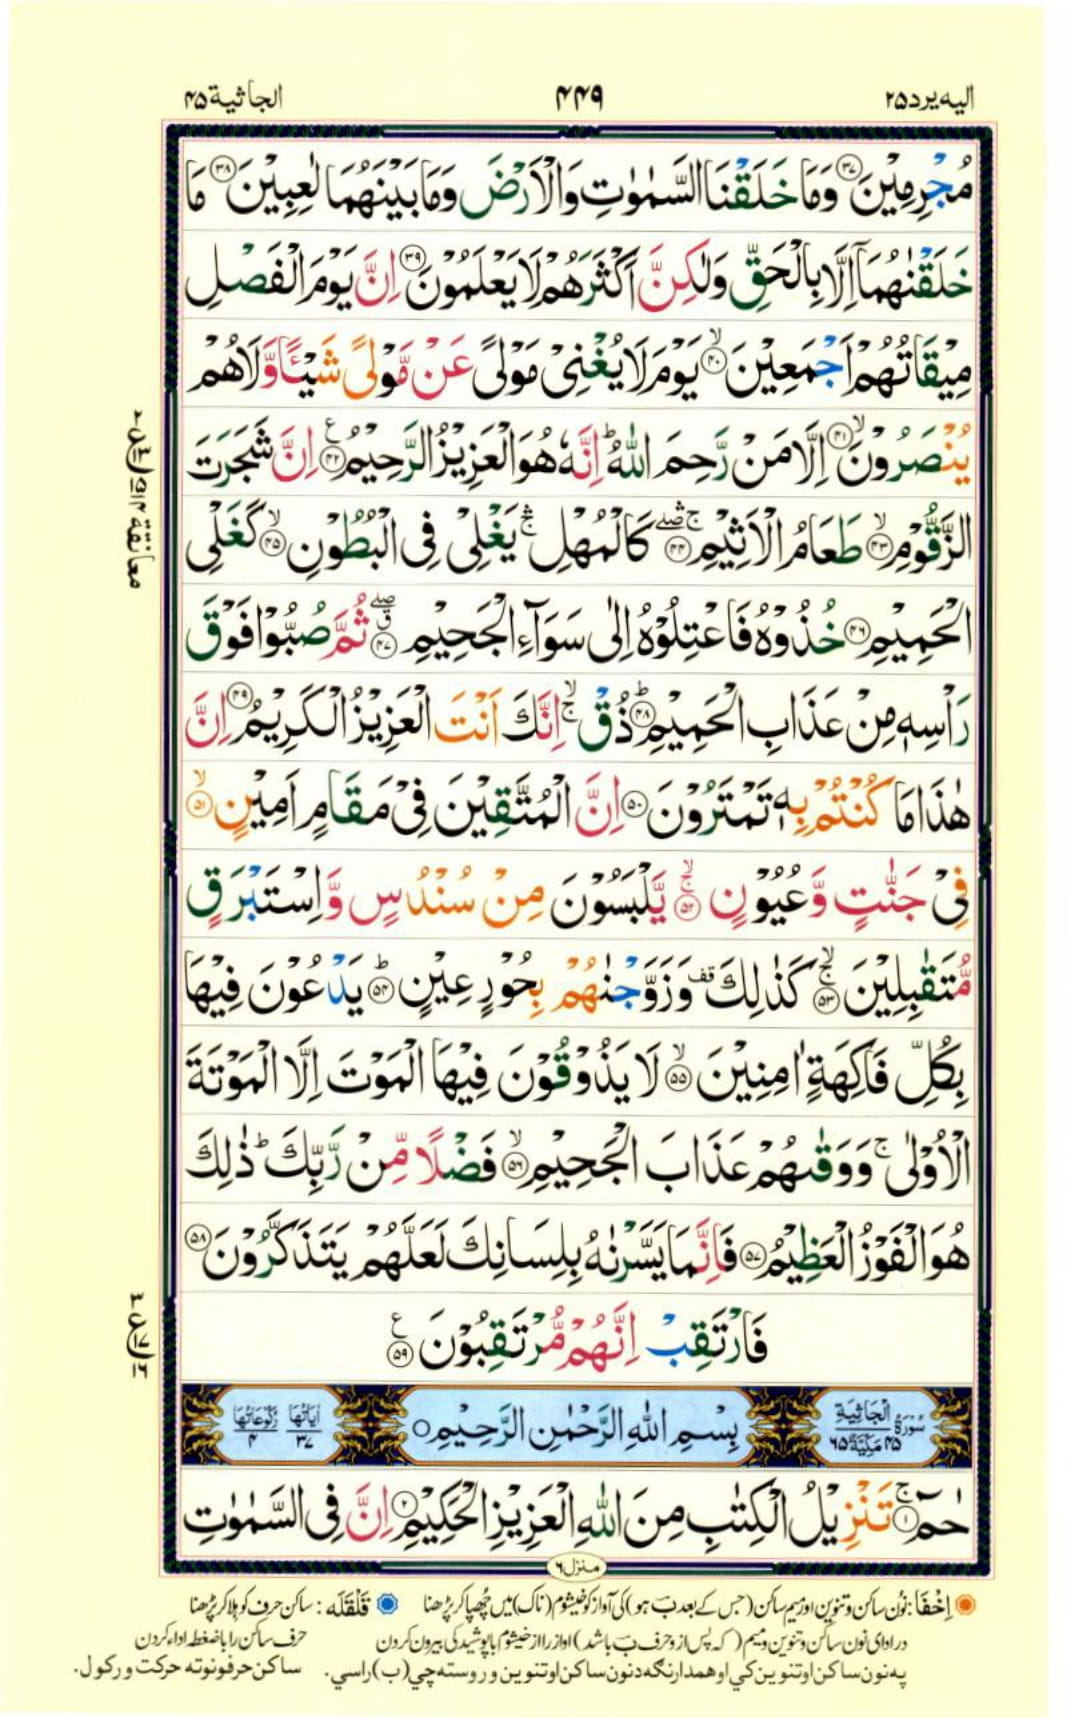 الیه یرد ۲۵
۴۴۹
الجاثیة ۴۵
مُجْرِمِیْنَ ۳۷ وَمَا خَلَقْنَا السَّمٰوٰتِ وَالْاَرْضَ وَمَا بَیْنَهُمَا لٰعِبِیْنَ ۳۸ مَا
خَلَقْنٰهُمَاۤ اِلَّا بِالْحَقِّ وَلٰكِنَّ اَكْثَرَهُمْ لَا یَعْلَمُوْنَ ۳۹ اِنَّ یَوْمَ الْفَصْلِ
مِیْقَاتُهُمْ اَجْمَعِیْنَ ۙ۴۰ یَوْمَ لَا یُغْنِیْ مَوْلًی عَنْ مَّوْلًی شَیْـًٔا وَّلَا هُمْ
یُنْصَرُوْنَ ۙ۴۱ اِلَّا مَنْ رَّحِمَ اللّٰهُ ؕ اِنَّهٗ هُوَ الْعَزِیْزُ الرَّحِیْمُ ۴۲ ع اِنَّ شَجَرَتَ
الزَّقُّوْمِ ۙ۴۳ طَعَامُ الْاَثِیْمِ ۴۴ ۚۖۛ كَالْمُهْلِ ۚۛ یَغْلِیْ فِی الْبُطُوْنِ ۙ۴۵ كَغَلْیِ
الْحَمِیْمِ ۴۶ خُذُوْهُ فَاعْتِلُوْهُ اِلٰی سَوَآءِ الْجَحِیْمِ ۴۷ ۗۖ ثُمَّ صُبُّوْا فَوْقَ
رَاْسِهٖ مِنْ عَذَابِ الْحَمِیْمِ ؕ۴۸ ذُقْ ۙۚ اِنَّكَ اَنْتَ الْعَزِیْزُ الْكَرِیْمُ ۴۹ اِنَّ
هٰذَا مَا كُنْتُمْ بِهٖ تَمْتَرُوْنَ ۵۰ اِنَّ الْمُتَّقِیْنَ فِیْ مَقَامٍ اَمِیْنٍ ۙ۵۱
فِیْ جَنّٰتٍ وَّعُیُوْنٍ ۙۚ۵۲ یَّلْبَسُوْنَ مِنْ سُنْدُسٍ وَّاِسْتَبْرَقٍ
مُّتَقٰبِلِیْنَ ۙۚ۵۳ كَذٰلِكَ قف وَزَوَّجْنٰهُمْ بِحُوْرٍ عِیْنٍ ؕ۵۴ یَدْعُوْنَ فِیْهَا
بِكُلِّ فَاكِهَةٍ اٰمِنِیْنَ ۙ۵۵ لَا یَذُوْقُوْنَ فِیْهَا الْمَوْتَ اِلَّا الْمَوْتَةَ
الْاُوْلٰی ۚ وَوَقٰىهُمْ عَذَابَ الْجَحِیْمِ ۙ۵۶ فَضْلًا مِّنْ رَّبِّكَ ؕ ذٰلِكَ
هُوَ الْفَوْزُ الْعَظِیْمُ ۵۷ فَاِنَّمَا یَسَّرْنٰهُ بِلِسَانِكَ لَعَلَّهُمْ یَتَذَكَّرُوْنَ ۵۸
فَارْتَقِبْ اِنَّهُمْ مُّرْتَقِبُوْنَ ۵۹ ع
سُوْرَةُ الْجَاثِیَةِ ۴۵ مَكِّیَّةٌ ۶۵
بِسْمِ اللّٰهِ الرَّحْمٰنِ الرَّحِیْمِ ۝
اٰیَاتُهَا ۳۷ رُكُوْعَاتُهَا ۴
حٰمٓ ۚ۱ تَنْزِیْلُ الْكِتٰبِ مِنَ اللّٰهِ الْعَزِیْزِ الْحَكِیْمِ ۲ اِنَّ فِی السَّمٰوٰتِ
منزل ۶
اِخْفَا: نُون ساکن و تنوین اور میم ساکن (جس کے بعد بَ ہو) کی آواز کو خیشوم (ناک) میں چُھپا کر پڑھنا قَلْقَلَه : ساکن حرف کو ہلا کر پڑھنا
در ادای نون ساکن و تنوین و میم ( که پس از و حرف بَ باشد ) اواز را از خیشوم با پوشیدگی بیرون کردن حرف ساکن را با ضغطه اداء کردن
په نون ساکن او تنوین کي او همدارنګه د نون ساکن او تنوین وروسته چي (ب) راسي. ساکن حرفونو ته حرکت ورکول.